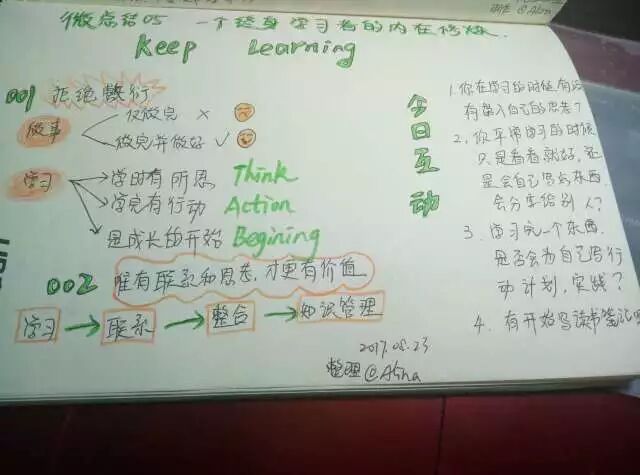 微总结05 一个终身学习者的内在修炼.
Keep Learning
001 拒绝敷衍
做事
仅做完 ×
做完并做好 ✓
学习
学时有所思 Think
学完有行动 Action
是成长的开始 Begining
002 唯有联系和思考,才更有价值
学习 → 联系 → 整合 → 知识管理
2017.08.23
整理@Alina
今日互动
1.你在学习的时候,有没
有带入自己的思考?
2.你平常学习的时候
只是看看就好,还
是会自己写点东西
会分享给别人?
3.学习完一个东西
是否会为自己写行
动计划,实践?
4.有开始写读书笔记